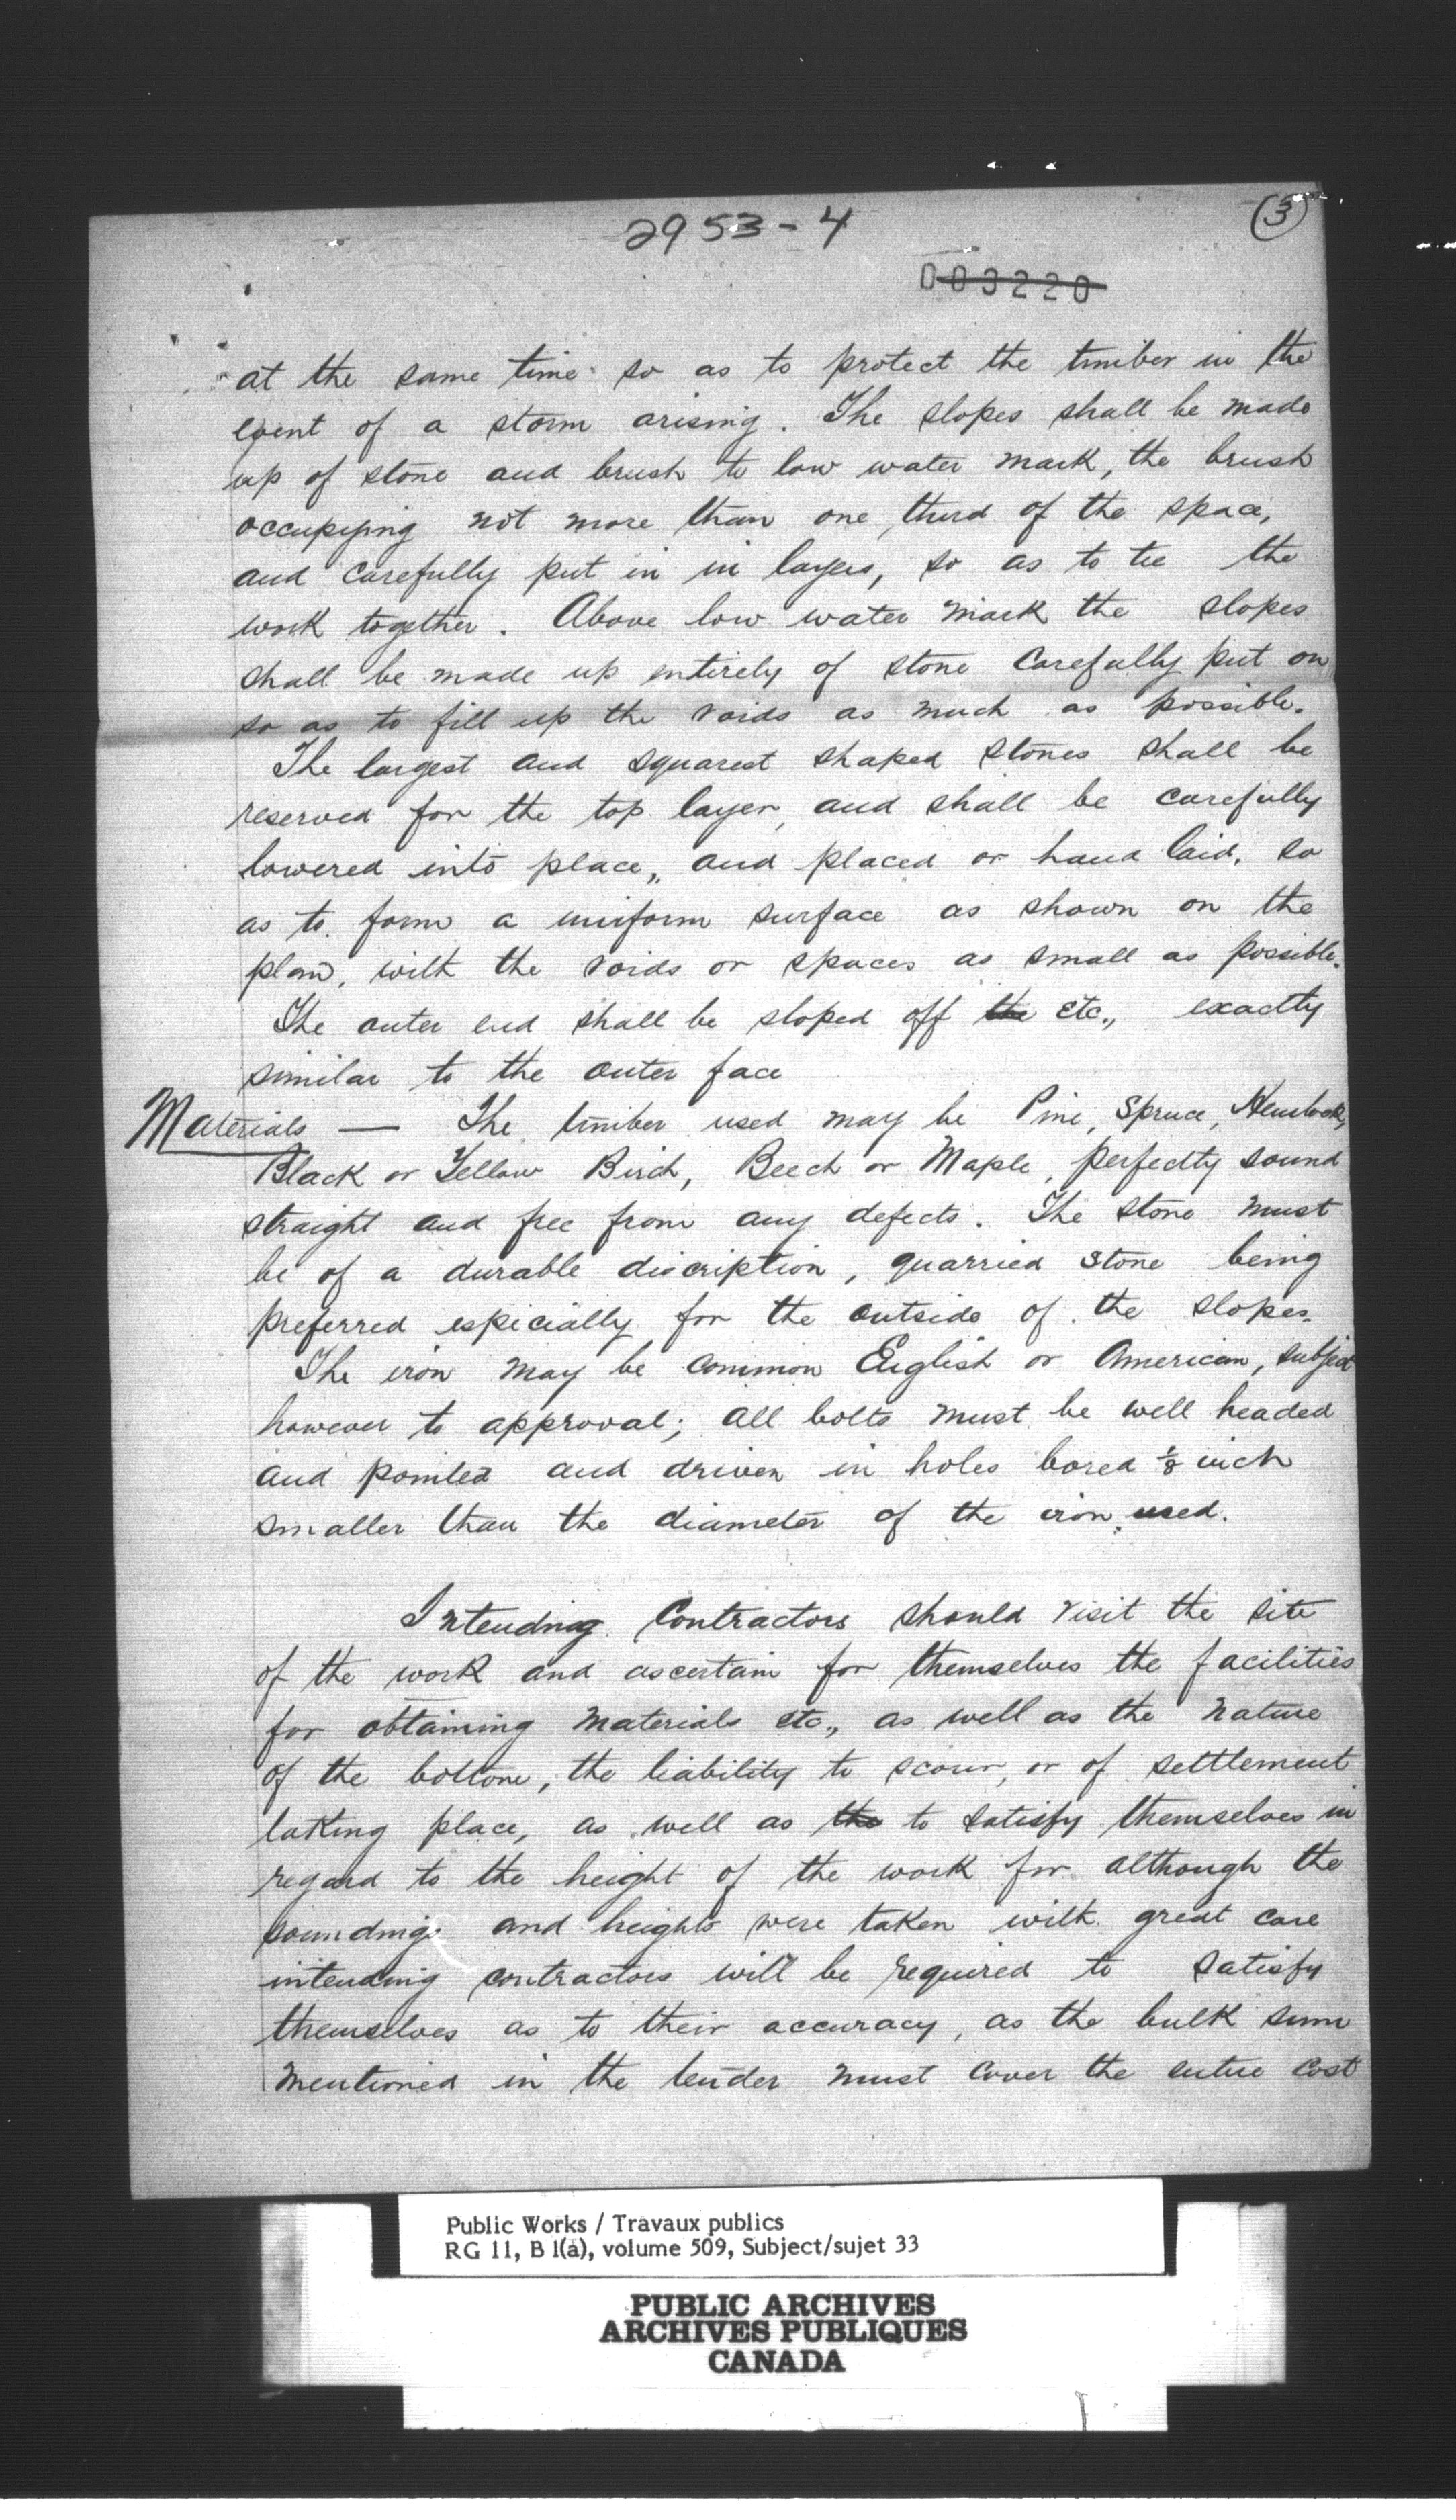 2953-4
(3)
003220
at the same time so as to protect the timber in the
event of a storm arising. The slopes shall be made
up of stone and brush to low water mark, the brush
occupying not more than one third of the space,
and carefully put in in layers, so as to tie the
work together. Above low water mark the slopes
shall be made up entirely of stone carefully put on
so as to fill up the voids as much as possible.
The largest and squarest shaped stones shall be
reserved for the top layer, and shall be carefully
lowered into place,, and placed or hand laid, so
as to form a uniform surface as shown on the
plan, with the voids or spaces as small as possible.
The outer end shall be sloped off the etc., exactly
similar to the outer face
Materials — The timber used may be Pine, Spruce, Hemlock,
Black or Yellow Birch, Beech or Maple, perfectly sound
straight and free from any defects. The stone must
be of a durable discription, quarried stone being
preferred especially for the outside of the slopes.
The iron may be common English or American, subject
however to approval; all bolts must be well headed
and pointed and driven in holes bored 1/8 inch
smaller than the diameter of the iron used.
Intending Contractors should visit the site
of the work and ascertain for themselves the facilities
for obtaining materials etc., as well as the nature
of the bottom, the liability to scour, or of settlement
taking place, as well as the to satisfy themselves in
regard to the height of the work for although the
soundings and heights were taken with great care
intending contractors will be required to satisfy
themselves as to their accuracy, as the bulk sum
mentioned in the tender must cover the entire cost
Public Works / Travaux publics
RG 11, B 1(a), volume 509, Subject/sujet 33
PUBLIC ARCHIVES
ARCHIVES PUBLIQUES
CANADA